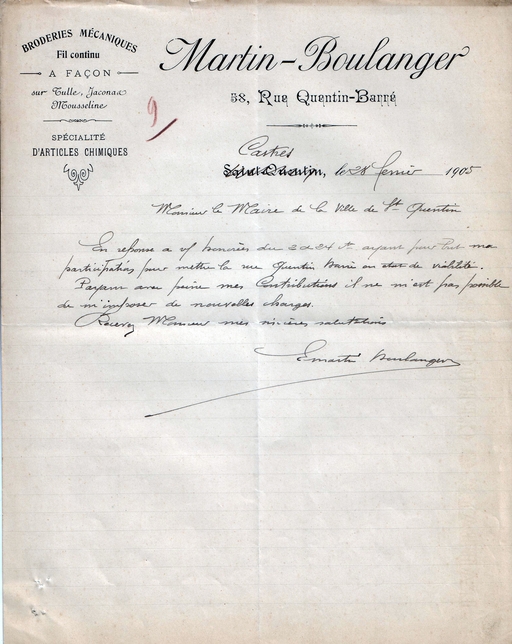 BRODERIES MÉCANIQUES
Fil continu
A FAÇON
sur Tulle, Jaconas
Mousseline
SPÉCIALITÉ
D'ARTICLES CHIMIQUES
Martin-Boulanger
58, Rue Quentin-Barré
9
Castres
Saint-Quentin, le 28 fevrier 1905
Monsieur le Maire de la Ville de St Quentin
En reponse a vf honorées du 2 & 24 ayant pour but ma
participation pour mettre la rue Quentin Barré en etat de viabilité.
Payant avec peine mes Contributions il ne m'est pas possible
de m'imposer de nouvelles charges.
Recevez Monsieur mes sincères salutations
Emartin Boulanger